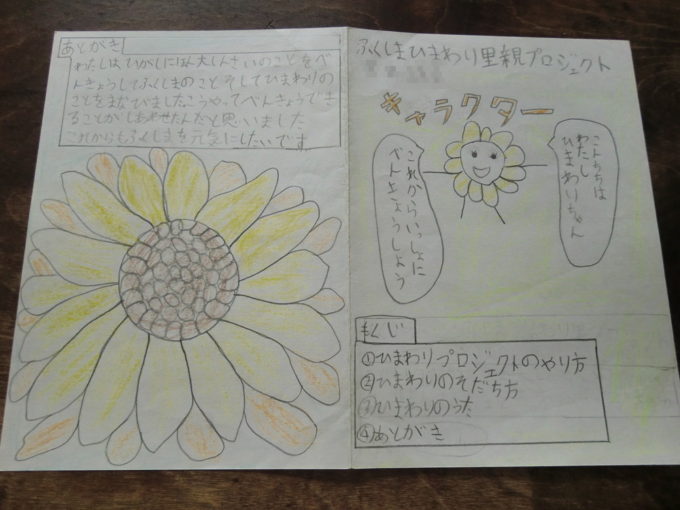 ふくしまひまわり里親プロジェクト
キャラクター
こんちちは
わたし
ひまわりちゃん
これからいっしょに
べんきょうしよう
もくじ
①ひまわりプロジェクトのやり方
②ひまわりのそだち方
③ひまわりのうた
④あとがき
あとがき
わたしはひがしにほん大しんさいのことをべ
んきょうしてふくしまのことそしてひまわりの
ことをまなびましたこうやってべんきょうでき
ることがしあわせなんだと思いました
これからもふくしまを元気にしたいです